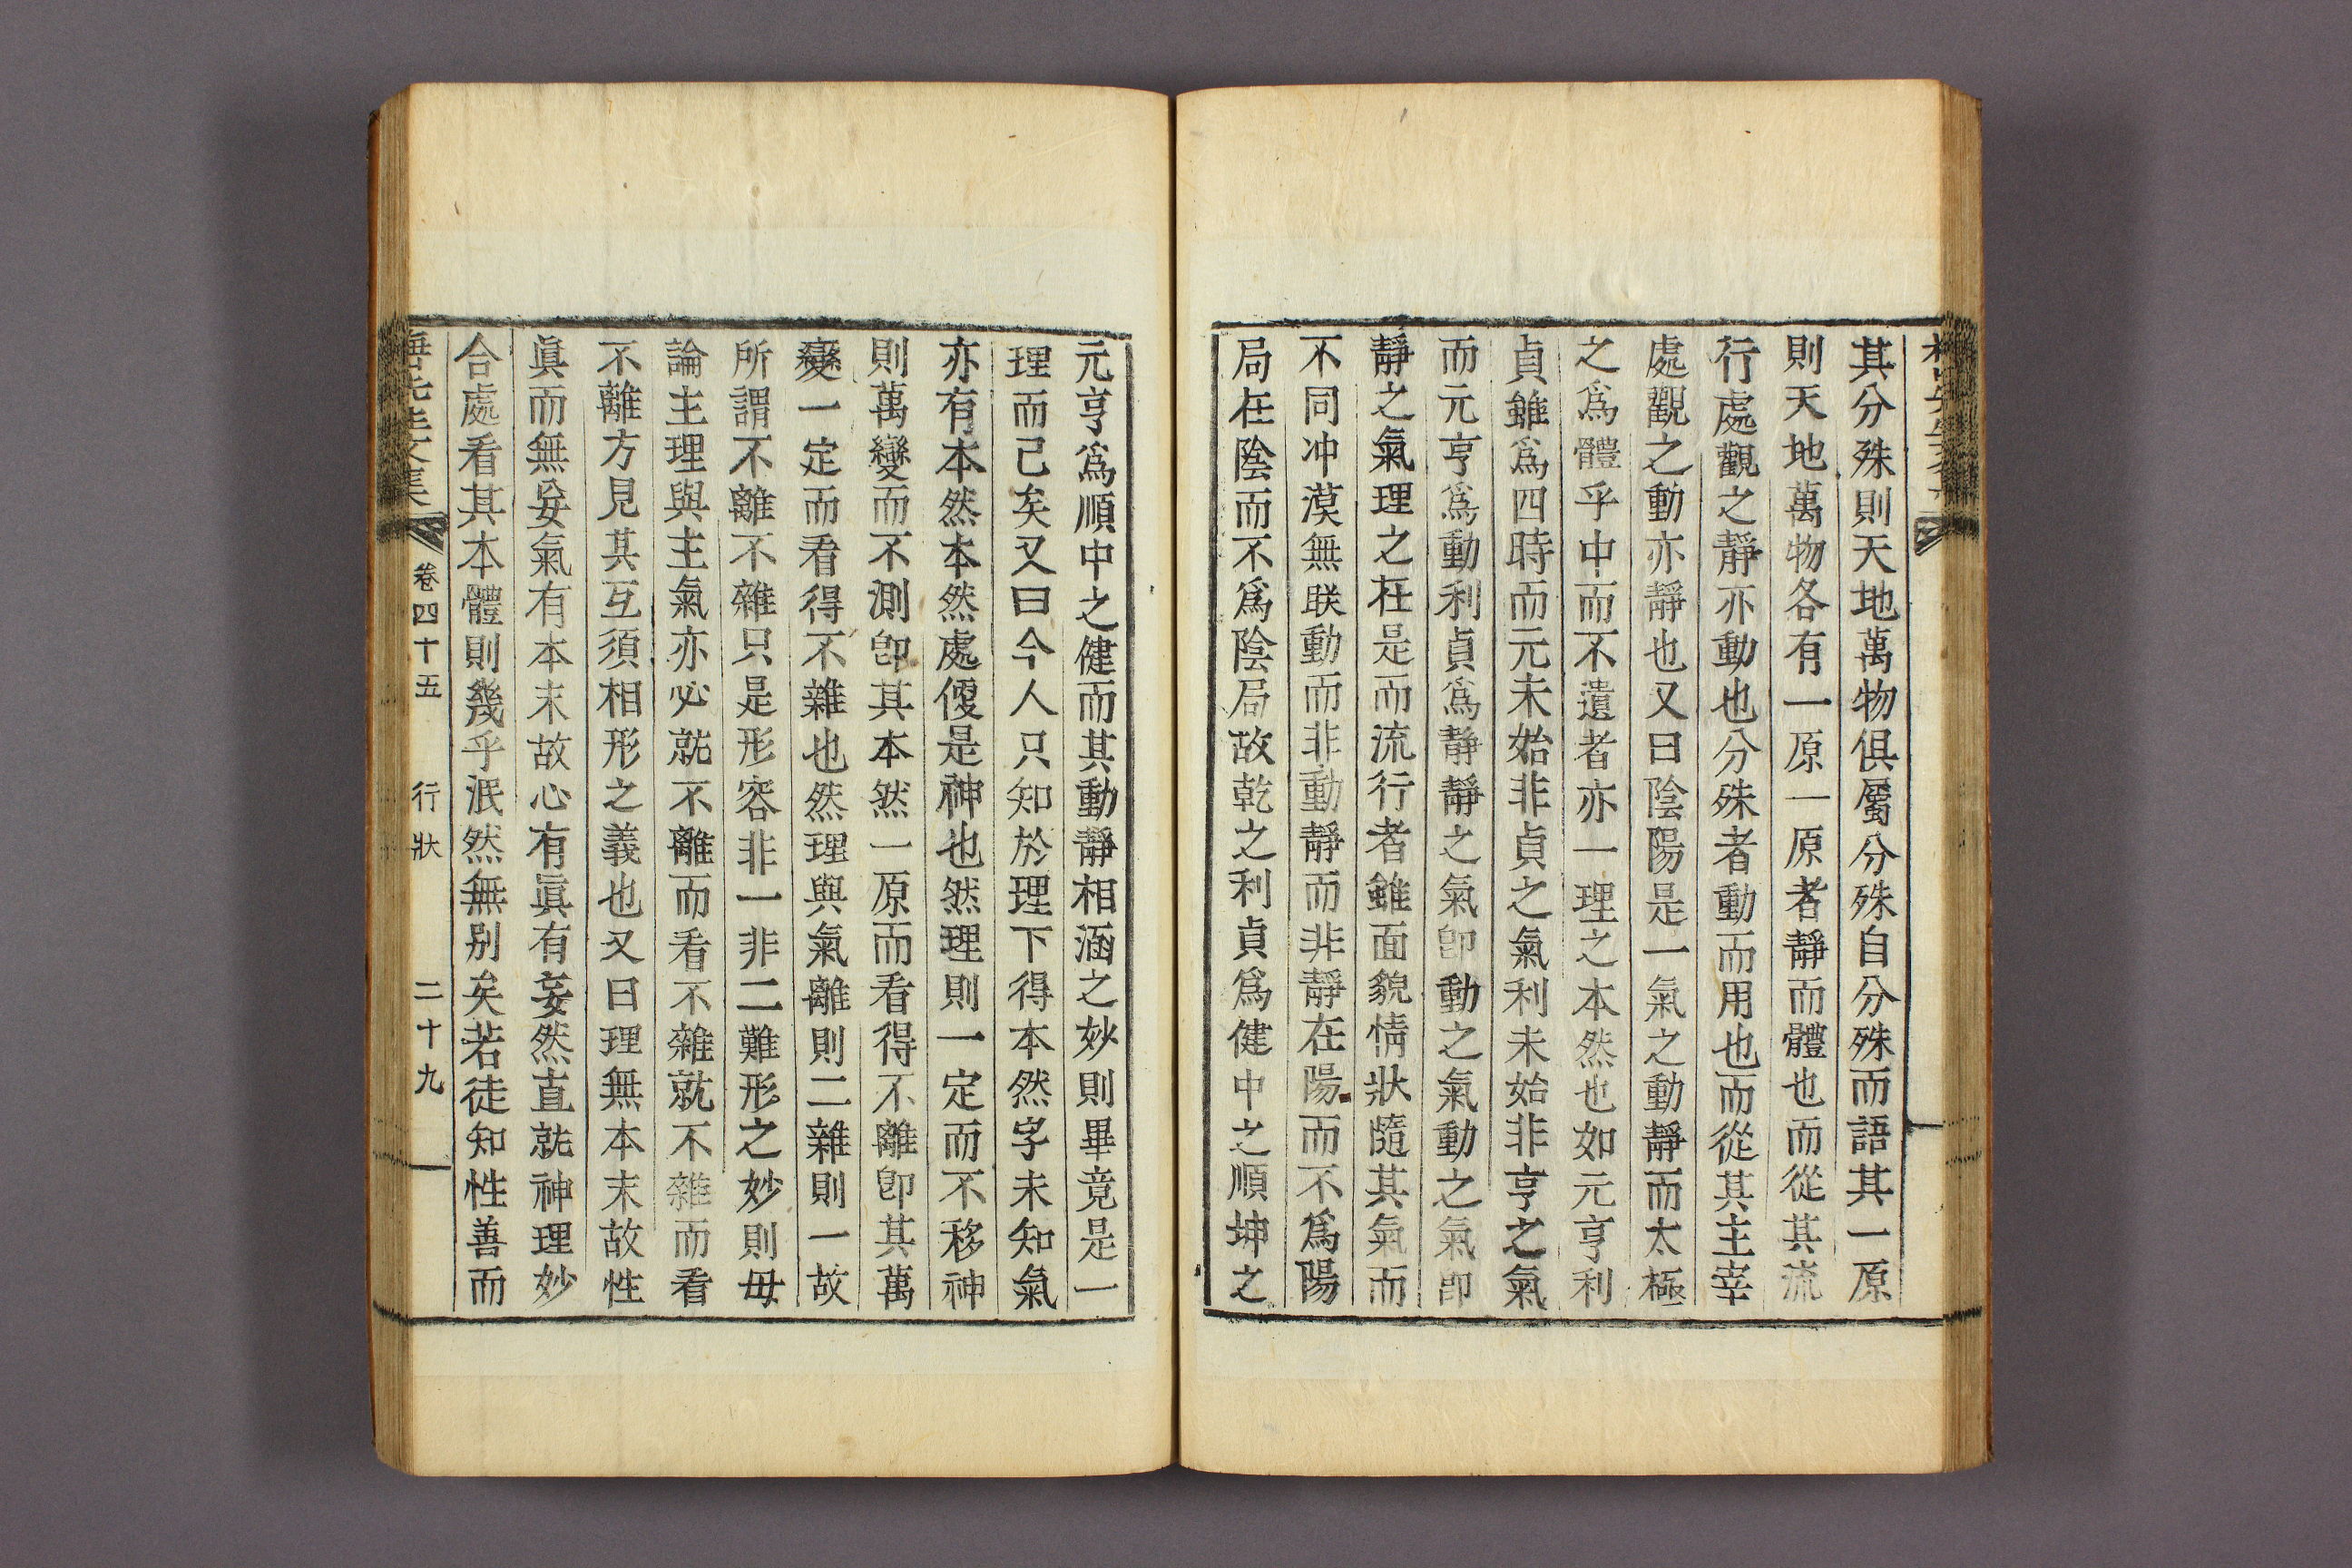 其分殊則天地萬物俱屬分殊自分殊而語其一原
則天地萬物各有一原一原者靜而體也而從其流
行處觀之靜亦動也分殊者動而用也而從其主宰
處觀之動亦靜也又曰陰陽是一氣之動靜而太極
之爲體乎中而不遺者亦一理之本然也如元亨利
貞雖爲四時而元未始非貞之氣利未始非亨之氣
而元亨爲動利貞爲静靜之氣卽動之氣動之氣卽
靜之氣理之在是而流行者雖面貌情狀隨其氣而
不同冲漠無眹動而非動靜而非靜在陽而不爲陽
局在陰而不爲陰局故乾之利貞爲健中之順坤之
元亨爲順中之健而其動靜相涵之妙則畢竟是一
理而已矣又曰今人只知於理下得本然字未知氣
亦有本然本然處便是神也然理則一定而不移神
則萬變而不測卽其本然一原而看得不離卽其萬
變一定而看得不雜也然理與氣離則二雜則一故
所謂不離不雜只是形容非一非二難形之妙則毋
論主理與主氣亦必就不離而看不雜就不雜而看
不離方見其互須相形之義也又曰理無本末故性
眞而無妄氣有本末故心有眞有妄然直就神理妙
合處看其本體則幾乎泯然無别矣若徒知性善而
先生文集 卷四十五 行狀 二十九